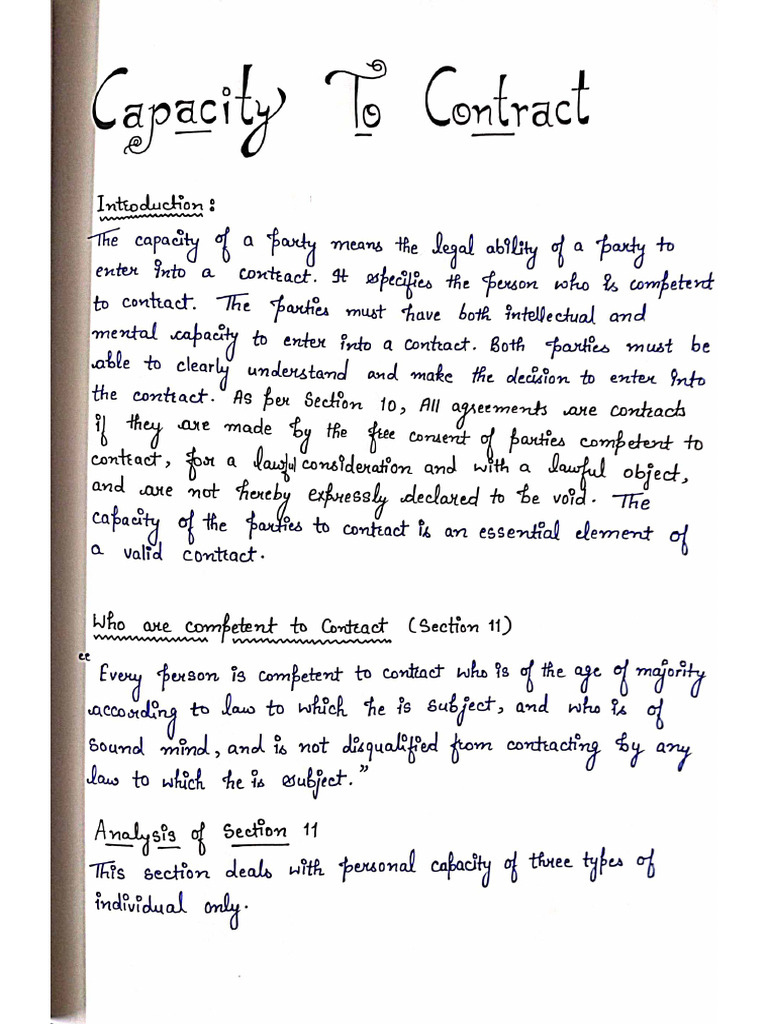 Capacity To Contract
Introduction:
The capacity of a party means the legal ability of a party to
enter into a contract. It specifies the person who is competent
to contract. The parties must have both intellectual and
mental capacity to enter into a contract. Both parties must be
able to clearly understand and make the decision to enter into
the contract. As per Section 10, All agreements are contracts
if they are made by the free consent of parties competent to
contract, for a lawful consideration and with a lawful object,
and are not hereby expressly declared to be void. The
capacity of the parties to contract is an essential element of
a valid contract.
Who are competent to Contract (Section 11)
“Every person is competent to contract who is of the age of majority
according to law to which he is subject, and who is of
sound mind, and is not disqualified from contracting by any
law to which he is subject.”
Analysis of Section 11
This section deals with personal capacity of three types of
individual only.